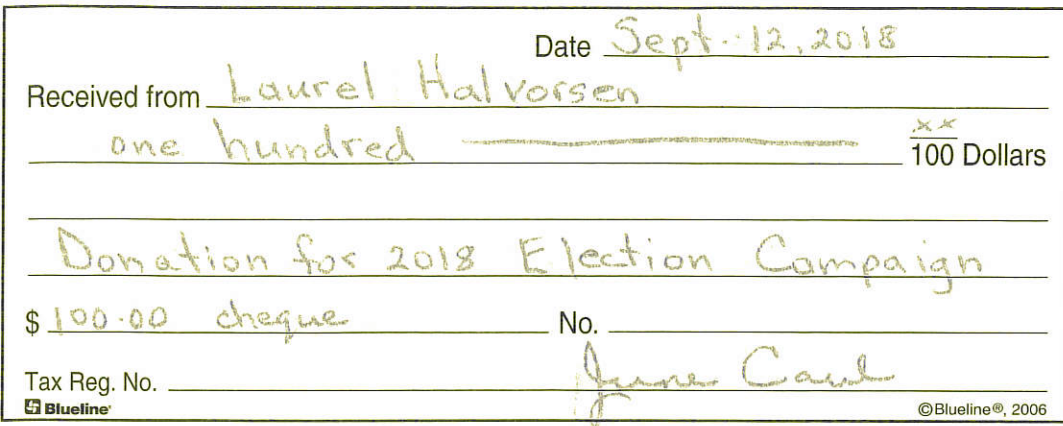 Date Sept. 12, 2018
Received from Laurel Halvorsen
one hundred ——— xx/100 Dollars
Donation for 2018 Election Campaign
$ 100.00 cheque No.
June Caul
Tax Reg. No.
Blueline ©Blueline®, 2006